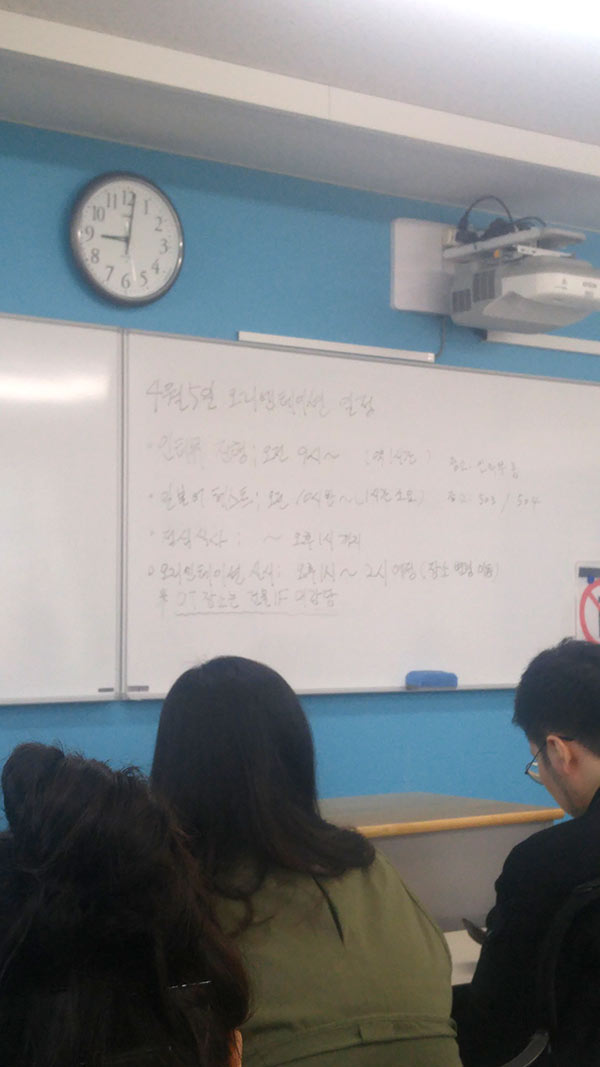 12
11
1
10
2
9
3
8
4
7
5
6
EPSON
4월 5일 오리엔테이션 일정
· 인터뷰 전형 ; 오전 9시 ~ (약 1시간)
· 일본어 테스트 ; 오전 10시 반 ~ (1시간 소요) 장소: 503 / 504
· 점심식사 : ~ 오후 1시 까지
오리엔테이션 실시 : 오후 1시 ~ 2시 예정 (장소 변경 있음)
※ OT 장소는 건물 1F 대강당